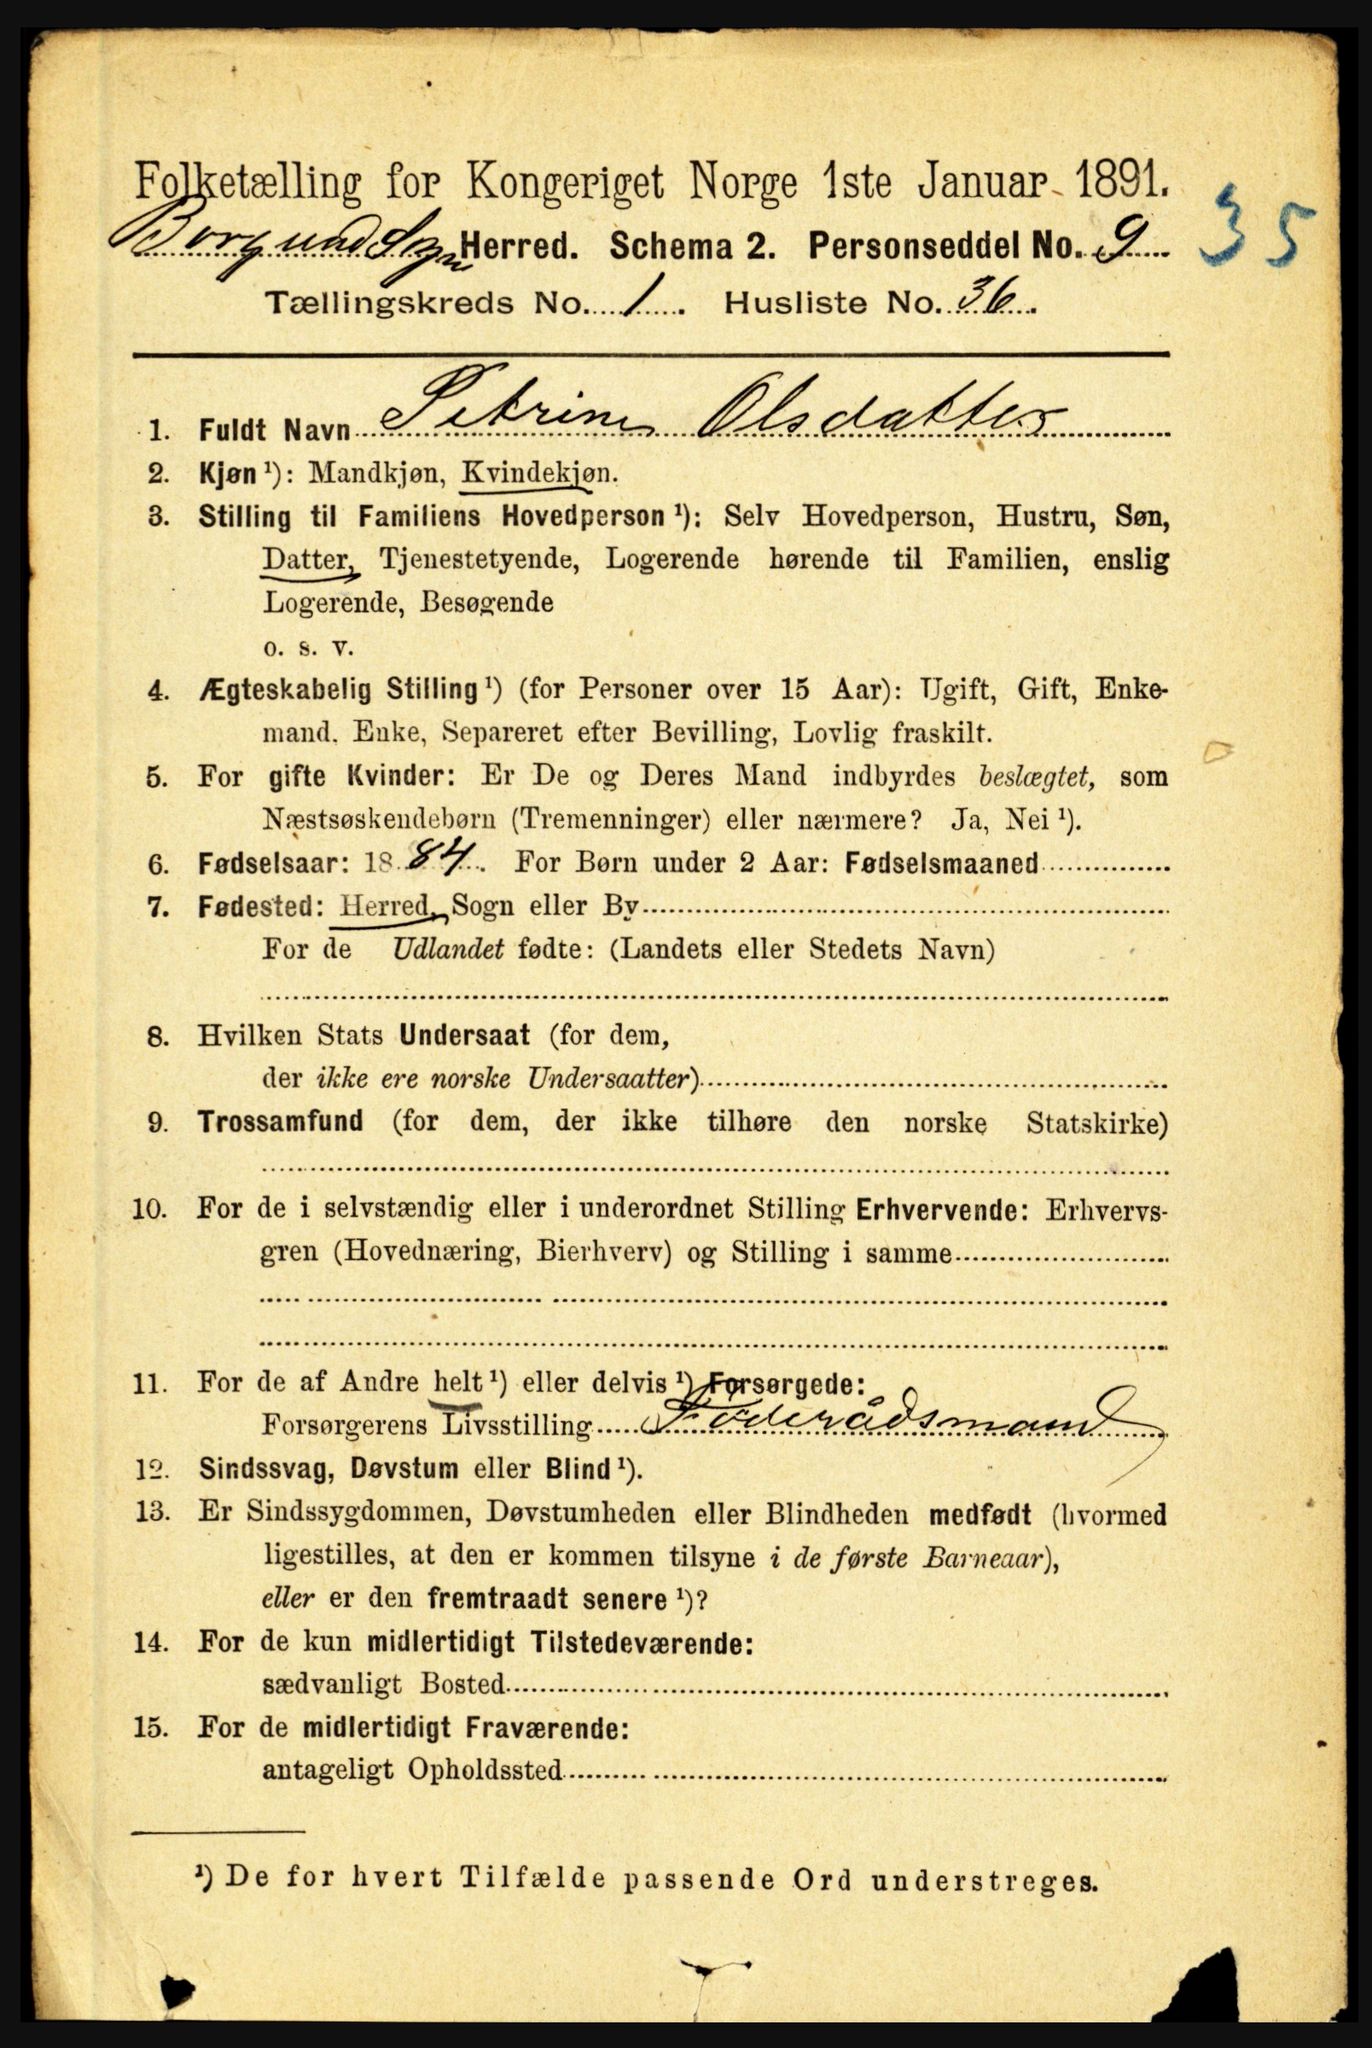 Folketælling for Kongeriget Norge 1ste Januar 1891.
35
Borgund Sogn Herred. Schema 2. Personseddel No. 9
Tællingskreds No. 1. Husliste No. 36.
1. Fuldt Navn Petrine Olsdatter
2. Kjøn ¹): Mandkjøn, Kvindekjøn.
3. Stilling til Familiens Hovedperson ¹): Selv Hovedperson, Hustru, Søn,
Datter, Tjenestetyende, Logerende hørende til Familien, enslig
Logerende, Besøgende
o. s. v.
4. Ægteskabelig Stilling ¹) (for Personer over 15 Aar): Ugift, Gift, Enke-
mand, Enke, Separeret efter Bevilling, Lovlig fraskilt.
5. For gifte Kvinder: Er De og Deres Mand indbyrdes beslægtet, som
Næstsøskendebørn (Tremenninger) eller nærmere? Ja, Nei ¹).
6. Fødselsaar: 1884. For Børn under 2 Aar: Fødselsmaaned
7. Fødested: Herred, Sogn eller By
For de Udlandet fødte: (Landets eller Stedets Navn)
8. Hvilken Stats Undersaat (for dem,
der ikke ere norske Undersaatter)
9. Trossamfund (for dem, der ikke tilhøre den norske Statskirke)
10. For de i selvstændig eller i underordnet Stilling Erhvervende: Erhvervs-
gren (Hovednæring, Bierhverv) og Stilling i samme
11. For de af Andre helt ¹) eller delvis ¹) Forsørgede:
Forsørgerens Livsstilling Føderådsmand
12. Sindssvag, Døvstum eller Blind ¹).
13. Er Sindssygdommen, Døvstumheden eller Blindheden medfødt (hvormed
ligestilles, at den er kommen tilsyne i de første Barneaar),
eller er den fremtraadt senere ¹)?
14. For de kun midlertidigt Tilstedeværende:
sædvanligt Bosted
15. For de midlertidigt Fraværende:
antageligt Opholdssted
¹) De for hvert Tilfælde passende Ord understreges.